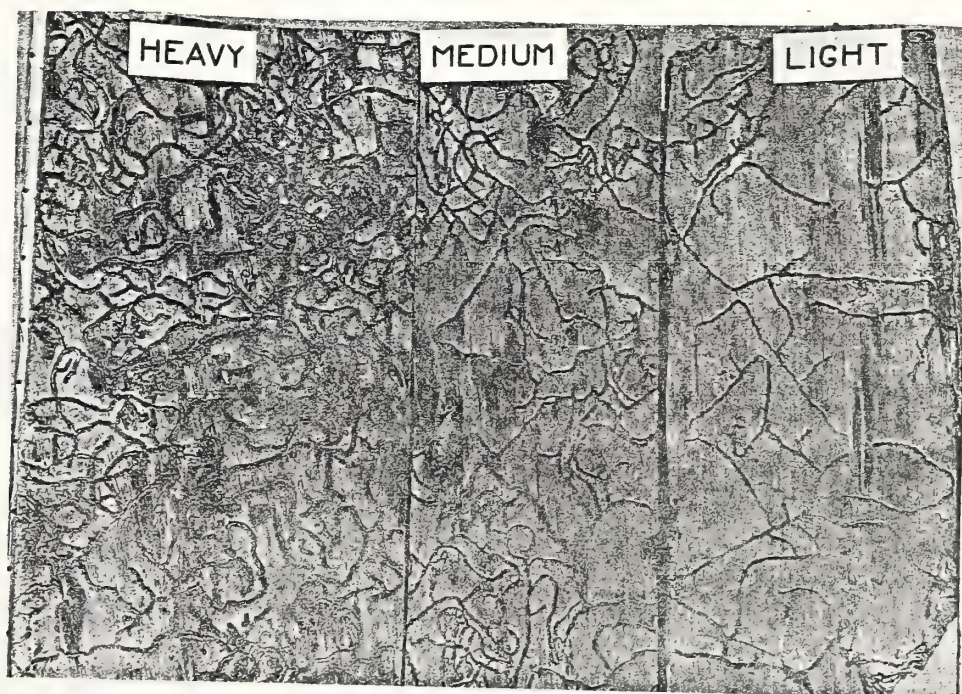 HEAVY
MEDIUM
LIGHT